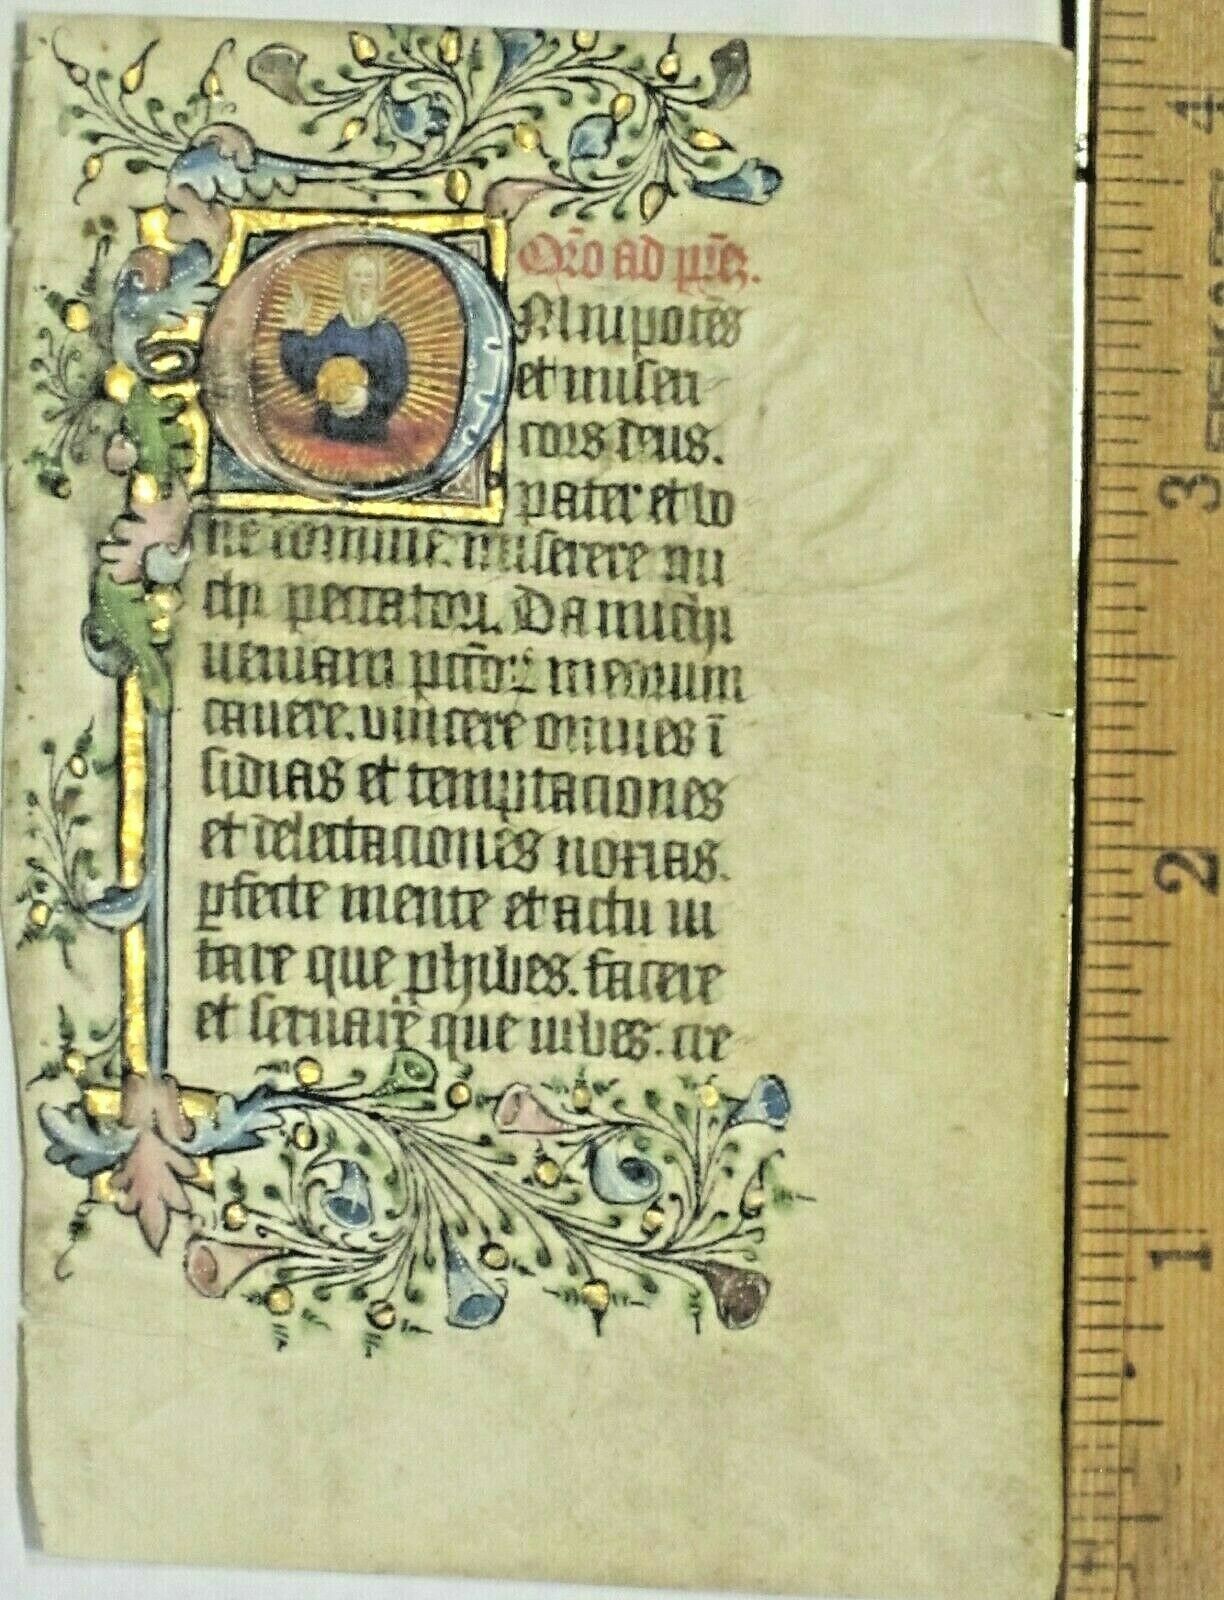 Or̄o ad pr̄ez.
OMnipotēs
et miseri
cors deus.
pater et bo
ne domine. miserere mi
chi peccatori. Da michi
veniam pctōꝝ meorum
cavere. vincere omnes ī
sidias et temptaciones
et delectaciones noxias.
ꝑfecte mente et actu vi
tare que ꝓhibes. facere
et servare que iubes. cre
4
3
2
1